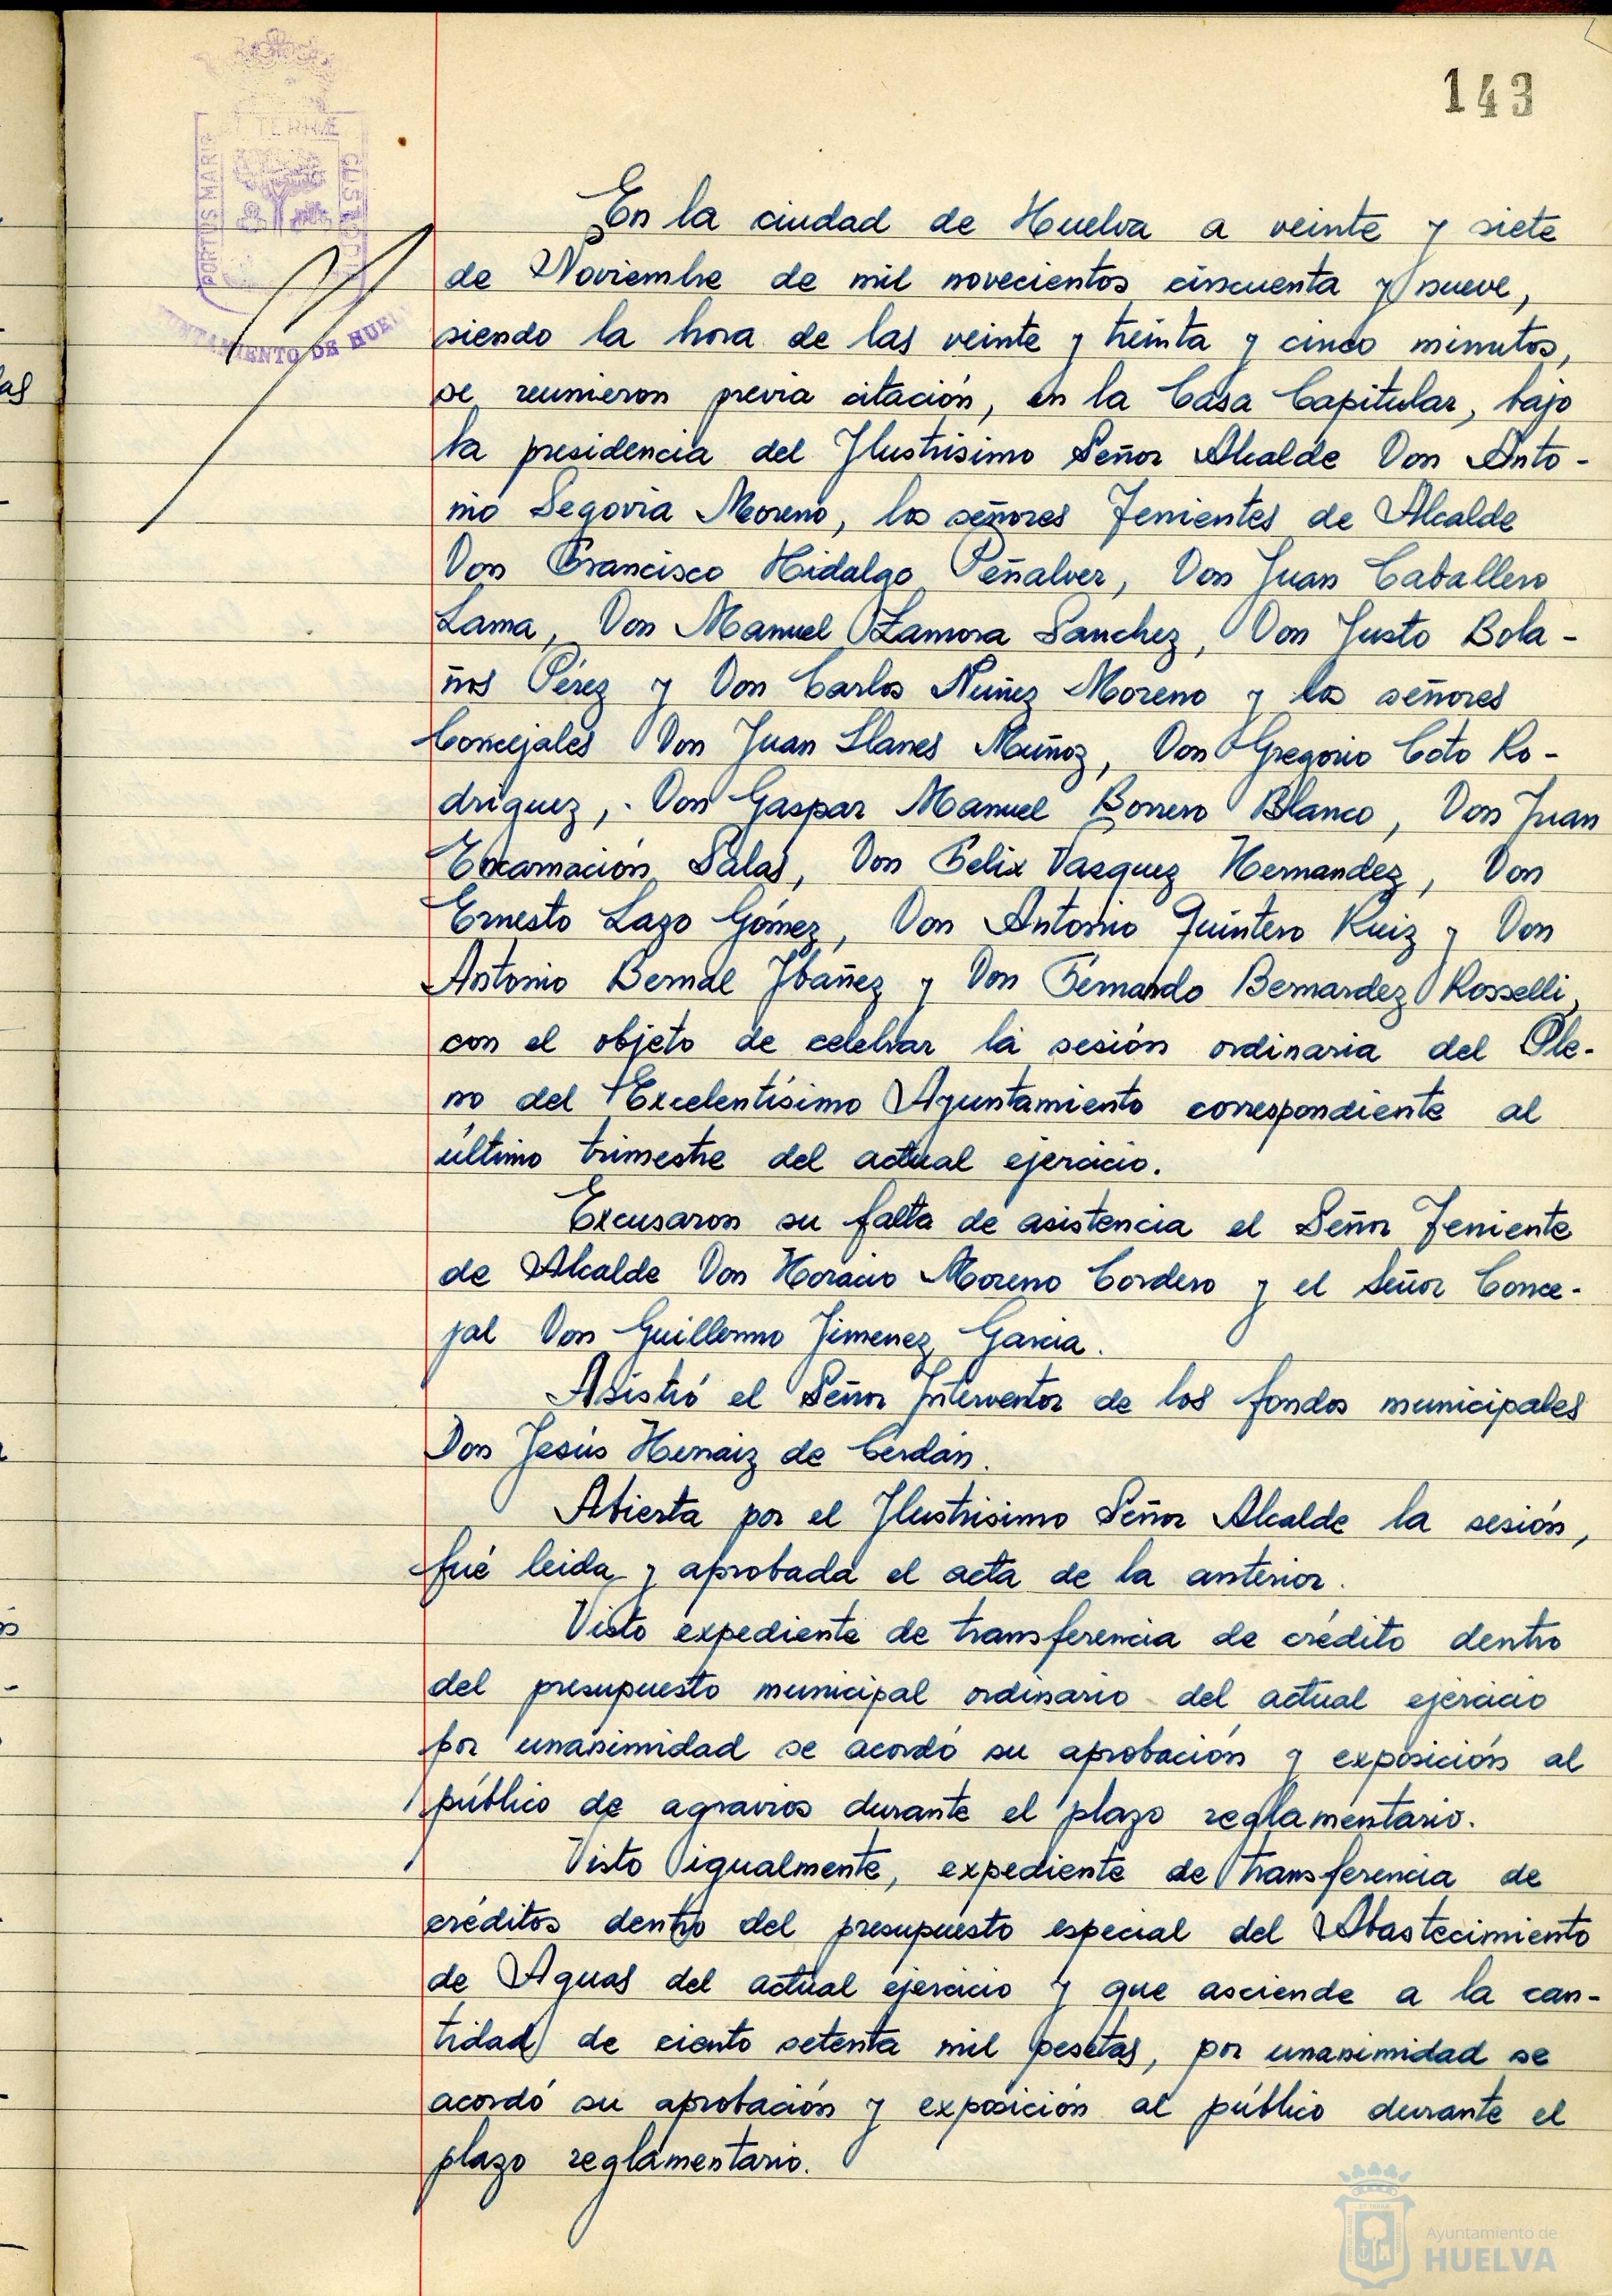 143
TERRAE
PORTUS MARIS
CUSTODIA
AYUNTAMIENTO DE HUELVA
En la ciudad de Huelva a veinte y siete
de Noviembre de mil novecientos cincuenta y nueve,
siendo la hora de las veinte y treinta y cinco minutos,
se reunieron previa citación, en la Casa Capitular, bajo
la presidencia del Ilustrisimo Señor Alcalde Don Anto-
nio Segovia Moreno, los señores Tenientes de Alcalde
Don Francisco Hidalgo Peñalver, Don Juan Caballero
Lama, Don Manuel Zamora Sanchez, Don Justo Bola-
ños Pérez y Don Carlos Nuñez Moreno y los señores
Concejales Don Juan Llanes Muñoz, Don Gregorio Coto Ro-
driguez, Don Gaspar Manuel Borrero Blanco, Don Juan
Encarnación Salas, Don Felix Vazquez Hernandez, Don
Ernesto Lazo Gómez, Don Antonio Quintero Ruiz y Don
Antonio Bernal Ibañez y Don Fernando Bernardez Rosselli,
con el objeto de celebrar la sesión ordinaria del Ple-
no del Excelentísimo Ayuntamiento correspondiente al
último trimestre del actual ejercicio.
Excusaron su falta de asistencia el Señor Teniente
de Alcalde Don Horacio Moreno Cordero y el Señor Conce-
jal Don Guillermo Jimenez Garcia.
Asistió el Señor Interventor de los fondos municipales
Don Jesús Henaiz de Cerdán.
Abierta por el Ilustrisimo Señor Alcalde la sesión,
fué leida y aprobada el acta de la anterior.
Visto expediente de transferencia de crédito dentro
del presupuesto municipal ordinario del actual ejercicio
por unanimidad se acordó su aprobación y exposición al
público de agravios durante el plazo reglamentario.
Visto igualmente, expediente de transferencia de
créditos dentro del presupuesto especial del Abastecimiento
de Aguas del actual ejercicio y que asciende a la can-
tidad de ciento setenta mil pesetas, por unanimidad se
acordó su aprobación y exposición al público durante el
plazo reglamentario.
Ayuntamiento de
HUELVA